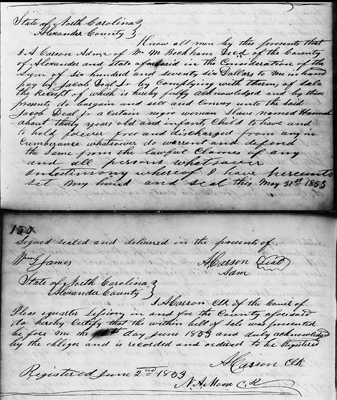 State of North Carolina
Alexander County
Know all men by these presents that
I A Carson Admr of Wm M Beckham Decd of the County
of Alexander and State aforesaid in the Consideration of the
Sum of six hundred and seventy six Dollars to me in hand
pay by Jacob Deal Jr by Complying with them of sale
the Receipt of which is hereby fully acknowledged and by these
presents do bargain and sell and Convey unto the said
Jacob Deal Jr a certain negro woman slave named Hannah
about thirty years old and infant child to have and
to hold forever free and discharged from any in
Cumbrance whatsoever do warrent and defend
the same from the lawful Claims of any
and all persons whatsoever
In testimony whereof I have hereunto
set my hand and seal this May 31st 1853
150
Signed sealed and delivered in the presents of
Wm James
A Carson Seal
Adm
State of North Carolina
Alexander County
I A Carson Clk of the Court of
Pleas quarter Session in and for the County aforesaid
do hereby Certify that the within bill of sale was presented
before me the day June 1853 and duly acknowledged
by the obligor and is recorded and ordered to be Registered
A Carson Clk
Registered June 2nd 1853
C R